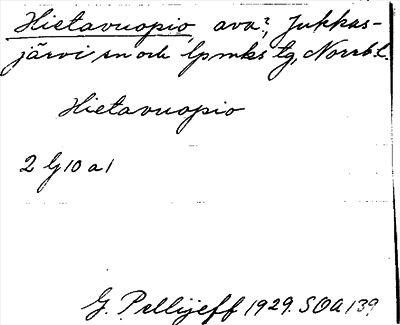 Hietavuopio, ava?, Jukkas-
järvi sn och lpmks tg, Norrb. l.
Hietavuopio
2 lj 10 a 1
G. Pellijeff 1929. SOA 139